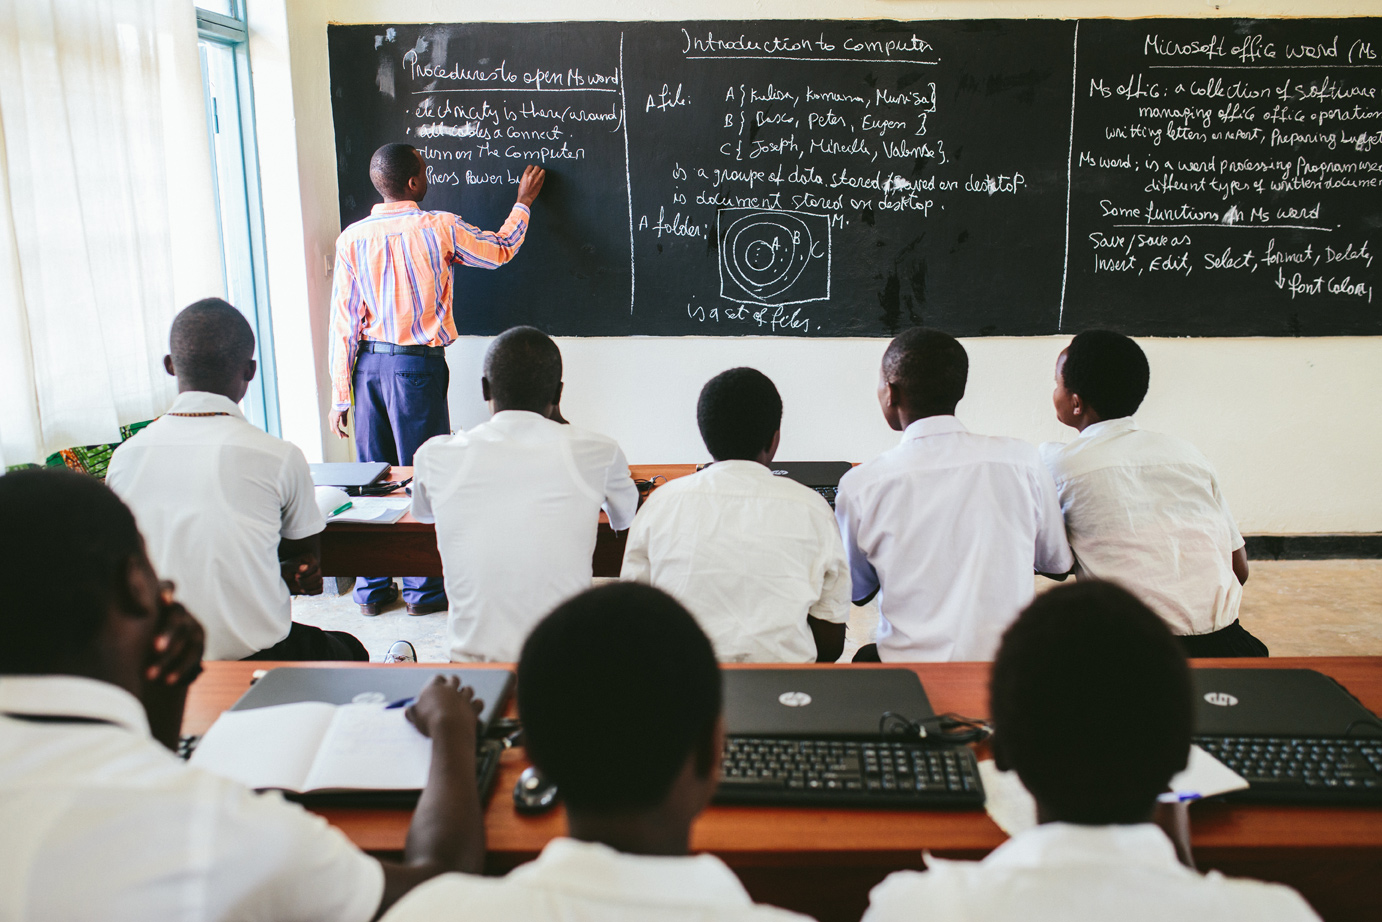 Procedures to open Ms word
• electricity is there (around)
• cables a Connect.
Turn on The Computer
Press Power bu
Introduction to computer
A file: A { Kalisa, Kamana, Munisa}
B { Bosco, Peter, Eugen }
C { Joseph, Mireille, }.
is a groupe of data stored on desktop.
is document stored on desktop.
A folder: M.
A B C
is a set of files.
Microsoft office word (Ms
Ms office: a collection of software
managing office office operation
writting letters or report, Preparing budget
Ms word: is a word processing Program used
different types of written documen
Some functions in Ms word
Save/save as
Insert, Edit, Select, format, Delete,
font Color,
hp
hp
hp